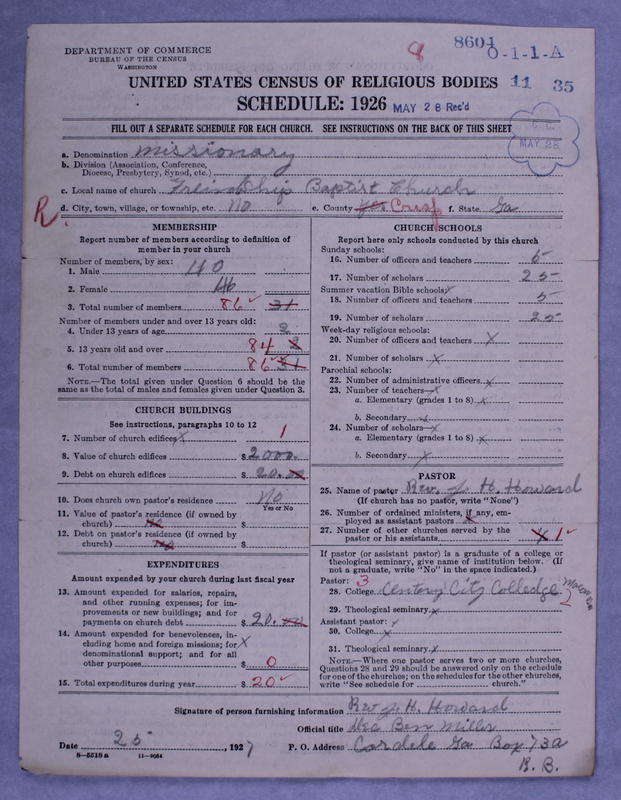 DEPARTMENT OF COMMERCE
BUREAU OF THE CENSUS
WASHINGTON
8
8604
0-1-1-A
UNITED STATES CENSUS OF RELIGIOUS BODIES 11 35
SCHEDULE: 1926 MAY 28 Rec'd
FILL OUT A SEPARATE SCHEDULE FOR EACH CHURCH. SEE INSTRUCTIONS ON THE BACK OF THIS SHEET
MAY 28
a. Denomination Missionary
b. Division (Association, Conference, Diocese, Presbytery, Synod, etc.)
c. Local name of church Freindship Baptist Church
R.
d. City, town, village, or township, etc. No e. County yes Crisp f. State Ga
MEMBERSHIP
Report number of members according to definition of
member in your church
Number of members, by sex:
1. Male 40
2. Female 46
3. Total number of members 86 31
Number of members under and over 13 years old:
4. Under 13 years of age 2
5. 13 years old and over 84
6. Total number of members 86 31
NOTE.—The total given under Question 6 should be the
same as the total of males and females given under Question 3.
CHURCH BUILDINGS
See instructions, paragraphs 10 to 12
7. Number of church edifices x 1
8. Value of church edifices $ 2000.
9. Debt on church edifices $ 20.00
10. Does church own pastor's residence No
Yes or No
11. Value of pastor's residence (if owned by
church) No $
12. Debt on pastor's residence (if owned by
church) No $
EXPENDITURES
Amount expended by your church during last fiscal year
13. Amount expended for salaries, repairs,
and other running expenses; for im-
provements or new buildings; and for
payments on church debt $ 20.00
14. Amount expended for benevolences, in-
cluding home and foreign missions; for x
denominational support; and for all
other purposes $ 0
15. Total expenditures during year $ 20
CHURCH SCHOOLS
Report here only schools conducted by this church
Sunday schools:
16. Number of officers and teachers 5
17. Number of scholars 25
Summer vacation Bible schools: x
18. Number of officers and teachers 5
19. Number of scholars 25
Week-day religious schools:
20. Number of officers and teachers x
21. Number of scholars x
Parochial schools:
22. Number of administrative officers x
23. Number of teachers— x
a. Elementary (grades 1 to 8) x
b. Secondary x
24. Number of scholars— x
a. Elementary (grades 1 to 8) x
b. Secondary x
PASTOR
25. Name of pastor Rev. J. H. Howard
(If church has no pastor, write "None")
26. Number of ordained ministers, if any, em-
ployed as assistant pastors x
27. Number of other churches served by the
pastor or his assistants x 1
If pastor (or assistant pastor) is a graduate of a college or
theological seminary, give name of institution below. (If
not a graduate, write "No" in the space indicated.)
Pastor: 3
28. College Centory City Colledge 2
29. Theological seminary x
Assistant pastor: x
30. College x
31. Theological seminary x
NOTE.—Where one pastor serves two or more churches,
Questions 28 and 29 should be answered only on the schedule
for one of the churches; on the schedules for the other churches,
write "See schedule for church."
Signature of person furnishing information Rev J. H. Howard
Official title Dec Ben Mills
Date 25, 1927 P. O. Address Cordele Ga Box 73a
R. B.
8—5518 a 11—9084